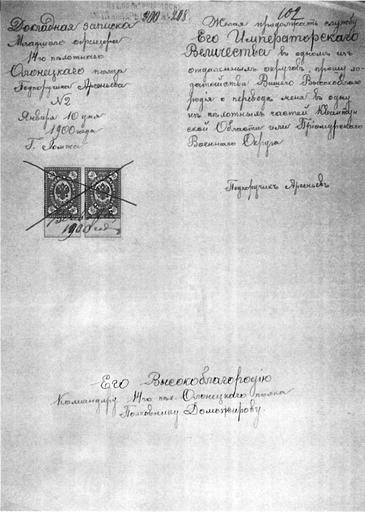 200 208.
102
Докладная записка
Младшаго офицера
14го пѣхотнаго
Олонецкаго полка
Подпоручика Арсеньева
№2
Января 10 дня
1900 года
Г. Ломжа
1900 год
Желая продолжать службу
Его Императорскаго
Величества въ одномъ изъ
отдаленныхъ округовъ, прошу хо-
датайства Вашего Высокоблаго-
родія о переводѣ меня въ одну
изъ пѣхотныхъ частей Квантун-
ской Области или Пріамурскаго
Военнаго Округа
Подпоручикъ Арсеньевъ
Его Высокоблагородію
Командиру 14го пѣх. Олонецкаго полка
Полковнику Доможирову.